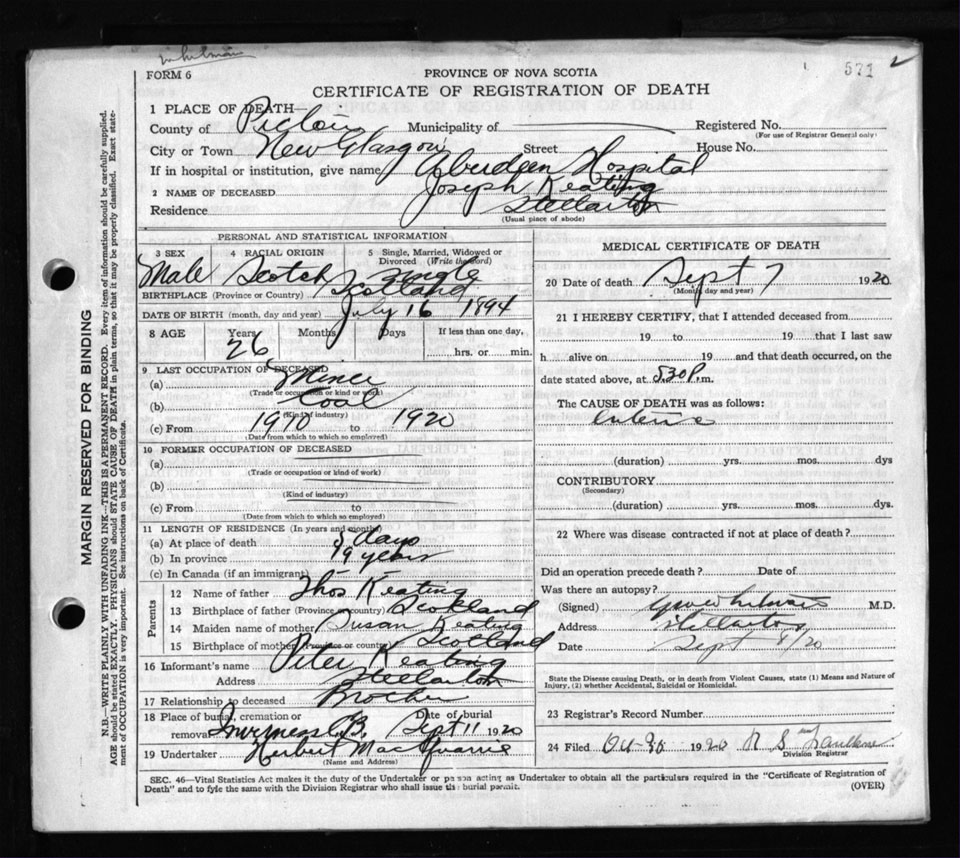 FORM 6
PROVINCE OF NOVA SCOTIA
571
CERTIFICATE OF REGISTRATION OF DEATH
1 PLACE OF DEATH—
County of Pictou Municipality of Registered No.
(For use of Registrar General only)
City or Town New Glasgow Street House No.
If in hospital or institution, give name Aberdeen Hospital
2 NAME OF DECEASED Joseph Keating
Residence Stellarton
(Usual place of abode)
PERSONAL AND STATISTICAL INFORMATION
3 SEX 4 RACIAL ORIGIN 5 Single, Married, Widowed or Divorced (Write the word)
Male Scotch Single
BIRTHPLACE (Province or Country) Scotland
DATE OF BIRTH (month, day and year) July 16 1894
8 AGE Years Months Days If less than one day,
26 hrs. or min.
9 LAST OCCUPATION OF DECEASED
(a) Miner
(Trade or occupation or kind or work)
(b) Coal
(Kind of industry)
(c) From 1910 to 1920
(Date from which to which so employed)
10 FORMER OCCUPATION OF DECEASED
(a)
(Trade or occupation or kind of work)
(b)
(Kind of industry)
(c) From to
(Date from which to which so employed)
11 LENGTH OF RESIDENCE (In years and months)
(a) At place of death 5 days
(b) In province 19 years
(c) In Canada (if an immigrant)
Parents
12 Name of father Thos Keating
13 Birthplace of father (Province or country) Scotland
14 Maiden name of mother Susan Keating
15 Birthplace of mother (Province or country) Scotland
16 Informant's name Peter Keating
Address Stellarton
17 Relationship to deceased Brother
18 Place of burial, cremation or removal Inverness C.B. Date of burial Sept 11 1920
19 Undertaker Herbert MacQuarrie
(Name and Address)
MEDICAL CERTIFICATE OF DEATH
20 Date of death Sept 7 1920
(Month, day and year)
21 I HEREBY CERTIFY, that I attended deceased from
19 to 19 that I last saw
h alive on 19 and that death occurred, on the
date stated above, at 5.30 P.m.
The CAUSE OF DEATH was as follows:
(duration) yrs. mos. dys
CONTRIBUTORY
(Secondary)
(duration) yrs. mos. dys
22 Where was disease contracted if not at place of death?
Did an operation precede death? Date of
Was there an autopsy?
(Signed) M.D.
Address Stellarton
Date Sept 8/20
State the Disease causing Death, or in death from Violent Causes, state (1) Means and Nature of
Injury, (2) whether Accidental, Suicidal or Homicidal.
23 Registrar's Record Number
24 Filed 1920
Division Registrar
SEC. 46—Vital Statistics Act makes it the duty of the Undertaker or person acting as Undertaker to obtain all the particulars required in the "Certificate of Registration of
Death" and to fyle the same with the Division Registrar who shall issue the burial permit.
(OVER)
MARGIN RESERVED FOR BINDING
N.B.—WRITE PLAINLY WITH UNFADING INK—THIS IS A PERMANENT RECORD. Every item of information should be carefully supplied.
AGE should be stated EXACTLY. PHYSICIANS should STATE CAUSE OF DEATH in plain terms, so that it may be properly classified. Exact state-
ment of OCCUPATION is very important. See instructions on back of Certificate.